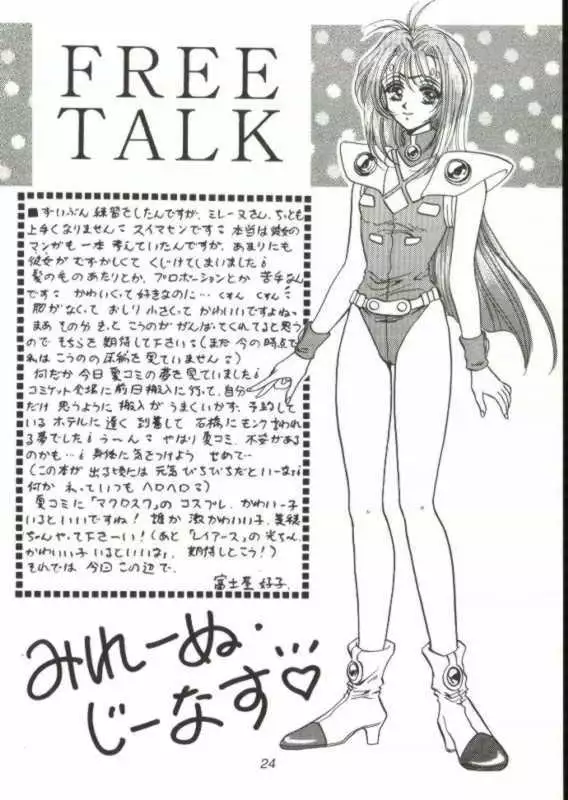 FREE
TALK
■ずいぶん 練習をしたんですが、ミレーヌさん、ちっとも
上手くなりません スイマセンです 本当は彼女の
マンガも 一本 考えていたんですが、あまりにも
彼女が むずかしくて くじけてしまいました
髪の毛の あたりとか、プロポーションとか 苦手なん
です かわいくって 好きなのに… くすん くすん
胸がなくて おしり 小さくって かわいいですよね
まあ その分 きっと こうのが がんばってくれてると思う
ので もちらを 期待して下さい (まだ 今の時点で
私は こうのの 原稿を 見ていません)
何だか 今日 夏コミの夢を 見ていました
コミケット会場に 前日搬入に 行って、自分
だけ 思うように 搬入が うまくいかず、予約して
いる ホテルに 遅く 到着して 石橋に モンク 言われ
る夢でした うーん やはり 夏コミ、不安がある
のかも…身体に 気をつけよう せめて…
(この本が 出る頃には 元気 ぴちぴちだと いーな
何か 私って いつも ヘロヘロ)
夏コミに「マクロス7」の コスプレ、かわいー子
いると いいですね! 誰か 激かわいい子、美穂
ちゃん やって 下さーい!(あと「レイアース」の 光ちゃん
かわいい子 いると いいな、期待しとこう!)
それでは 今回 この辺で、
富士屋 好子.
みれーぬ・
じーなす♡
24